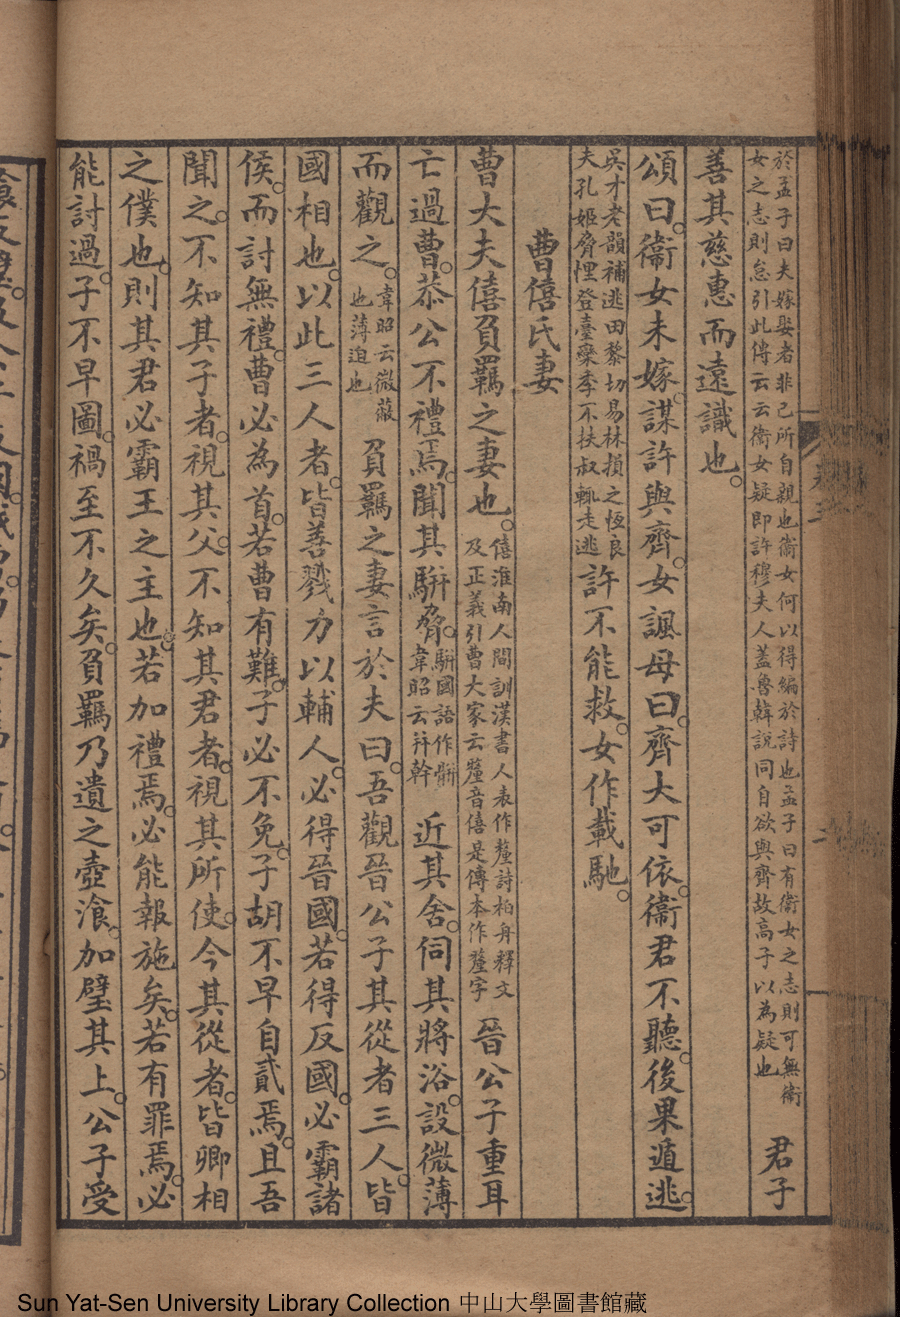 於孟子曰夫嫁娶者非己所自親也衞女何以得編於詩也孟子曰有衞女之志則可無衞
女之志則怠引此傳云云衞女疑即許穆夫人蓋魯韓說同自欲與齊故高子以為疑也
君子
善其慈惠而遠識也。
頌曰。衞女未嫁。謀許與齊。女諷母曰。齊大可依。衞君不聽。後果遁逃。
吳才老韻補逃田黎切易林損之恆良
夫孔姬脅悝登臺欒季不扶叔輒走逃
許不能救。女作載馳。
曹僖氏妻
曹大夫僖負羈之妻也。
僖淮南人間訓漢書人表作釐詩柏舟釋文
及正義引曹大家云釐音僖是傳本作釐字
晉公子重耳
亡過曹。恭公不禮焉。聞其駢脅。
駢國語作骿
韋昭云幷幹
近其舍。伺其將浴。設微薄
而觀之。
韋昭云微蔽
也薄迫也
負羈之妻言於夫曰。吾觀晉公子其從者三人。皆
國相也。以此三人者。皆善戮力以輔人。必得晉國。若得反國。必霸諸
侯。而討無禮。曹必為首。若曹有難。子必不免。子胡不早自貳焉。且吾
聞之。不知其子者。視其父。不知其君者。視其所使。今其從者。皆卿相
之僕也。則其君必霸王之主也。若加禮焉。必能報施矣。若有罪焉。必
能討過。子不早圖。禍至不久矣。負羈乃遺之壺飡。加璧其上。公子受